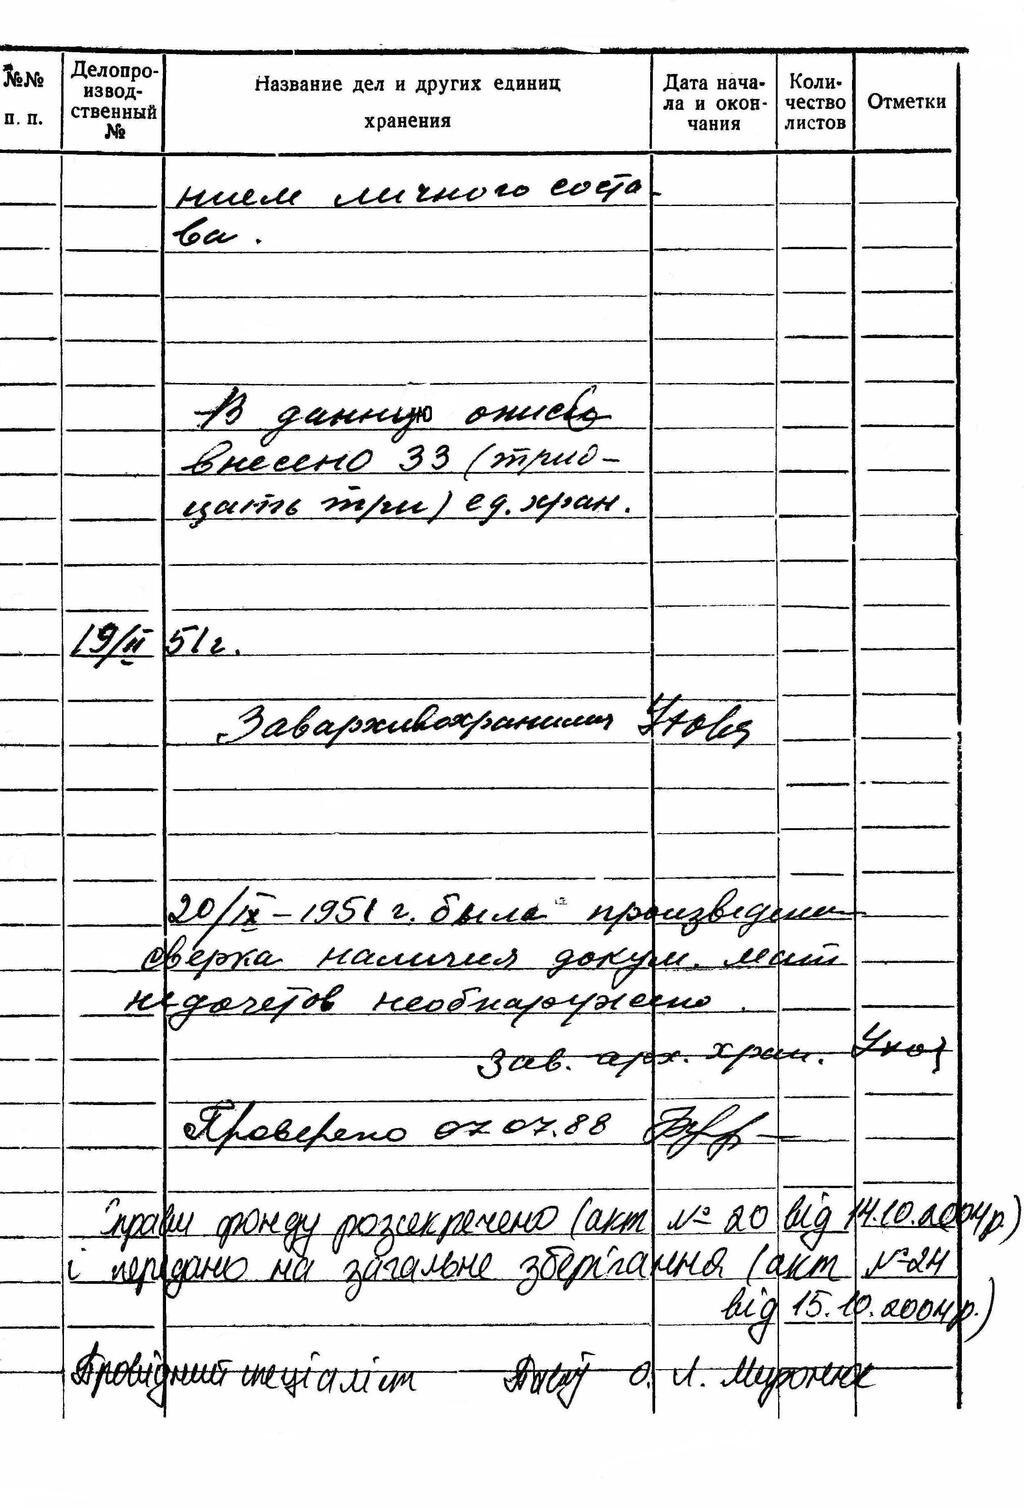 №№ п. п.
Делопро-
извод-
ственный
№
Название дел и других единиц
хранения
Дата нача-
ла и окон-
чания
Коли-
чество
листов
Отметки
нием личного соста-
ва.
В данную опись
внесено 33 (трид-
цать три) ед. хран.
19/II 51 г.
Зав архивохранилищ
20/IX – 1951 г. была произведена
сверка наличия докум. мат
недочетов необнаружено.
Зав. арх. хран.
Проверено 07.07.88
Справи фонду розсекречено (акт № 20 від 14.10.2004р.)
і передано на загальне зберігання (акт № 24
від 15.10.2004р.)
Провідний спеціаліст О. Л. Миронюк